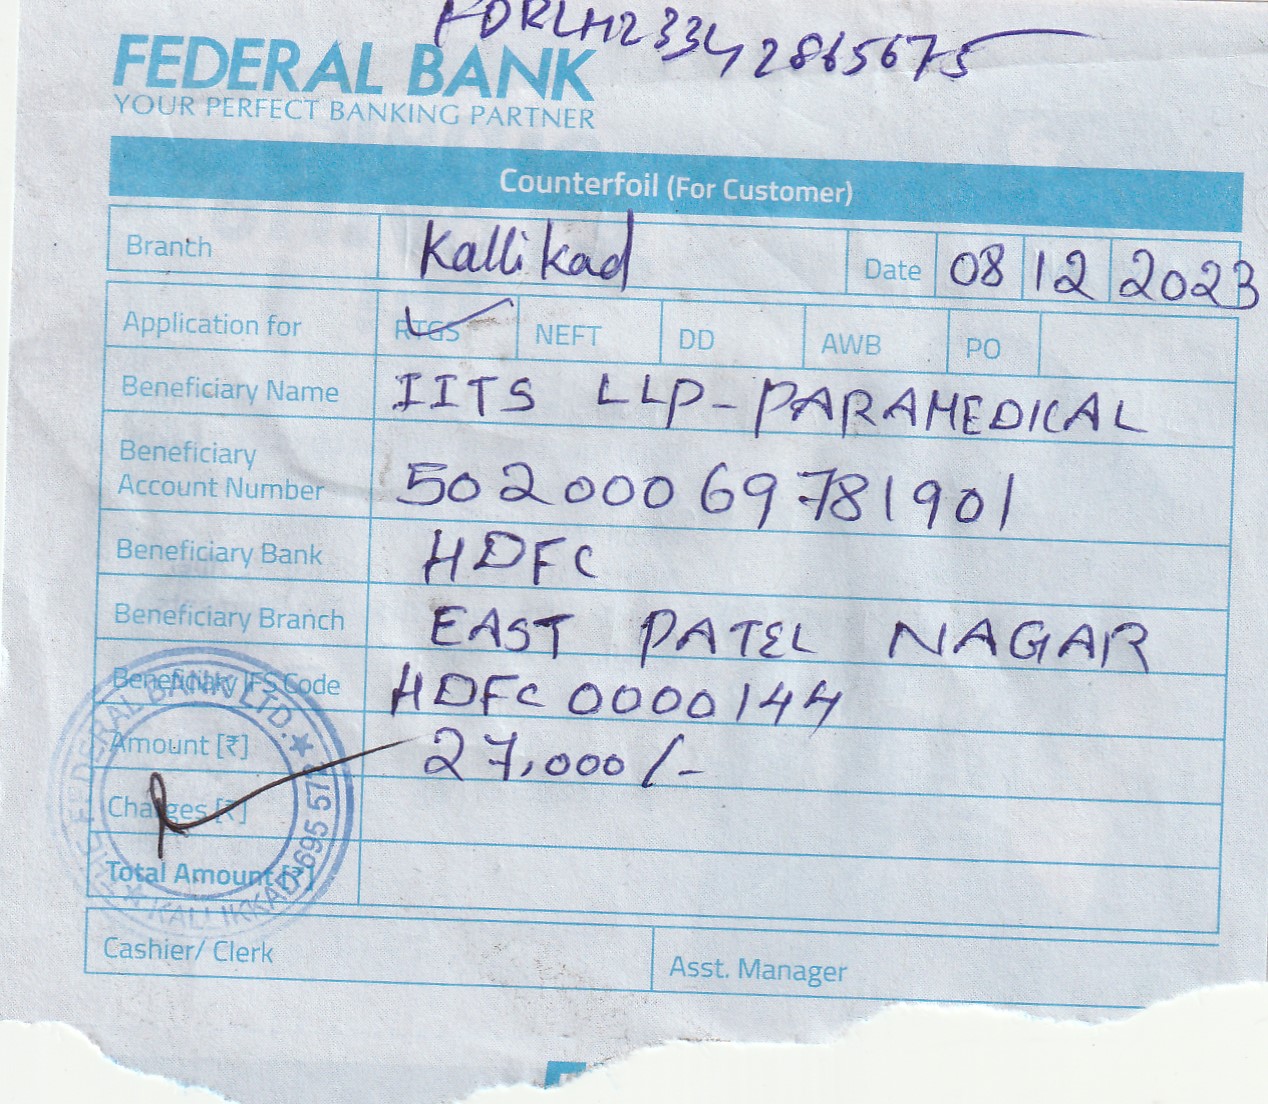 FDRLH23342865675
FEDERAL BANK
YOUR PERFECT BANKING PARTNER
Counterfoil (For Customer)
Branch Kallikad Date 08 12 2023
Application for RTGS NEFT DD AWB PO
Beneficiary Name IITS LLP-PARAMEDICAL
Beneficiary
Account Number 50200069781901
Beneficiary Bank HDFC
Beneficiary Branch EAST PATEL NAGAR
Beneficiary IFS Code HDFC0000144
Amount [₹] 27,000/-
Charges [₹]
Total Amount [₹]
THE FEDERAL BANK LTD. ★ KALLIKKAD-695 572 ★
Cashier/ Clerk Asst. Manager